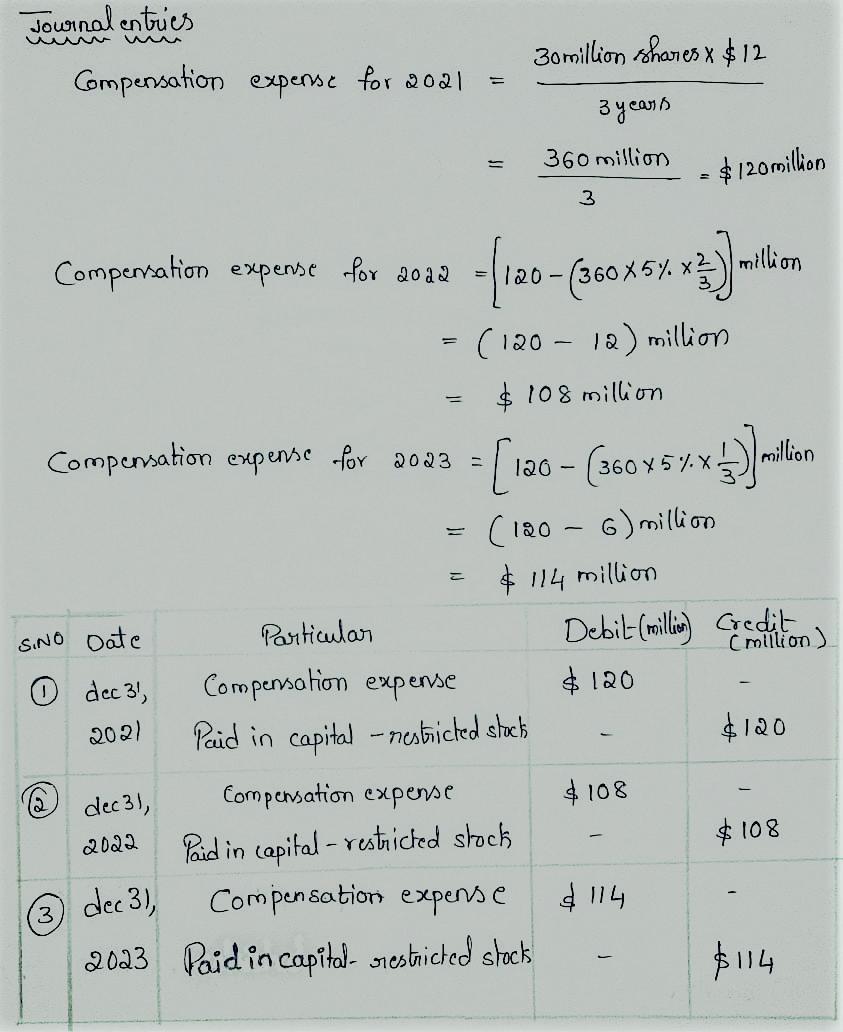 Journal entries
30 million shares x $12
Compensation expense for 2021 = 
3 years
= 360 million = $120 million
3
Compensation expense for 2022 = [120 - (360 x 5% x 2/3)] million
= (120 - 12) million
= $ 108 million
Compensation expense for 2023 = [120 - (360 x 5% x 1/3)] million
= (120 - 6) million
= $ 114 million
S.NO Date Particular Debit (million) Credit (million)
① dec 31, Compensation expense $ 120 -
2021 Paid in capital - restricted stock - $120
② dec 31, Compensation expense $ 108 -
2022 Paid in capital - restricted stock - $ 108
③ dec 31, Compensation expense $ 114 -
2023 Paid in capital - restricted stock - $114